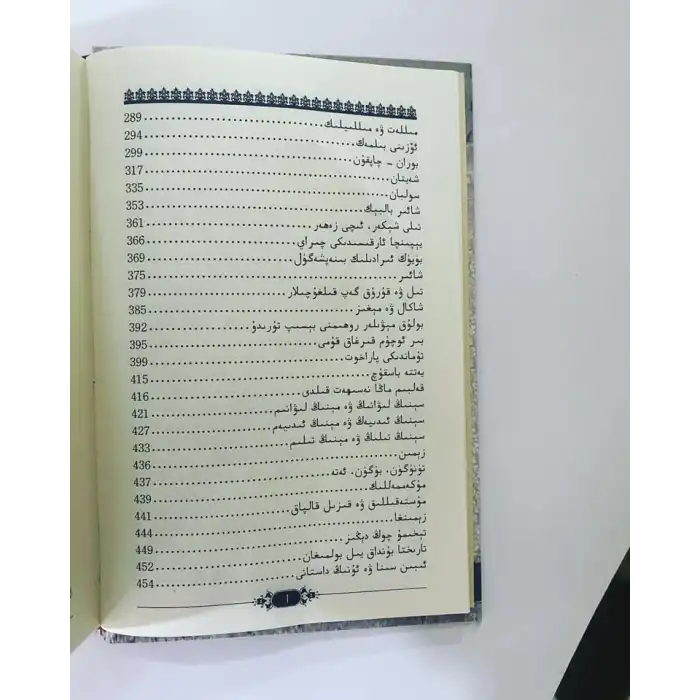 مىللەت ۋە مىللىيلىك 289
ئۆزىنى بىلمەك 294
بوران - چاپقۇن 299
شەيتان 317
سولىيان 335
شائىر بالىپىك 353
تىلى شېكەر، ئىچى زەھەر 361
يېپىنچا ئارقىسىدىكى چىراي 366
بۈيۈك ئىرادىلىك بىنەپشەگۈل 369
شائىر 375
تىل ۋە قۇرۇق گەپ قىلغۇچىلار 379
شاكال ۋە مېغىز 385
بولۇق مېۋىلەر روھىمنى بېسىپ تۇرىدۇ 392
بىر ئوچۇم قىرغاق قۇمى 395
تۇماندىكى پاراخوت 399
يەتتە باسقۇچ 415
قەلبىم ماڭا نەسىھەت قىلدى 416
سېنىڭ لىۋانىڭ ۋە مېنىڭ لىۋانىم 421
سېنىڭ ئىدىيەڭ ۋە مېنىڭ ئىدىيەم 427
سېنىڭ تىلىڭ ۋە مېنىڭ تىلىم 433
زېمىن 436
تۈنۈگۈن، بۈگۈن، ئەتە 437
مۇكەممەللىك 439
مۇستەقىللىق ۋە قىزىل قالپاق 441
زېمىنغا 444
تېخىمۇ چوڭ دېڭىز 449
تارىختا بۇنداق يىل بولمىغان 452
ئىبىن سىنا ۋە ئۇنىڭ داستانى 454
1